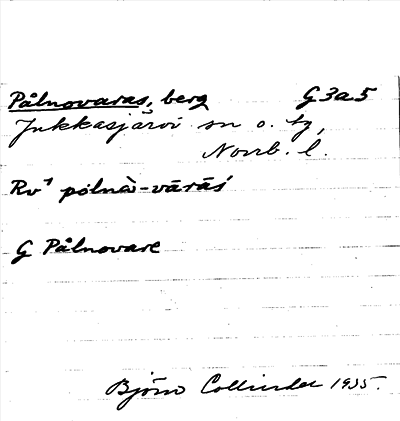 Pålnovaras, berg G3a5
Jukkasjärvi sn o. tg,
Norrb. l.
Rv¹ pólnà-vārāś
G Pålnovare
Björn Collinder 1935.